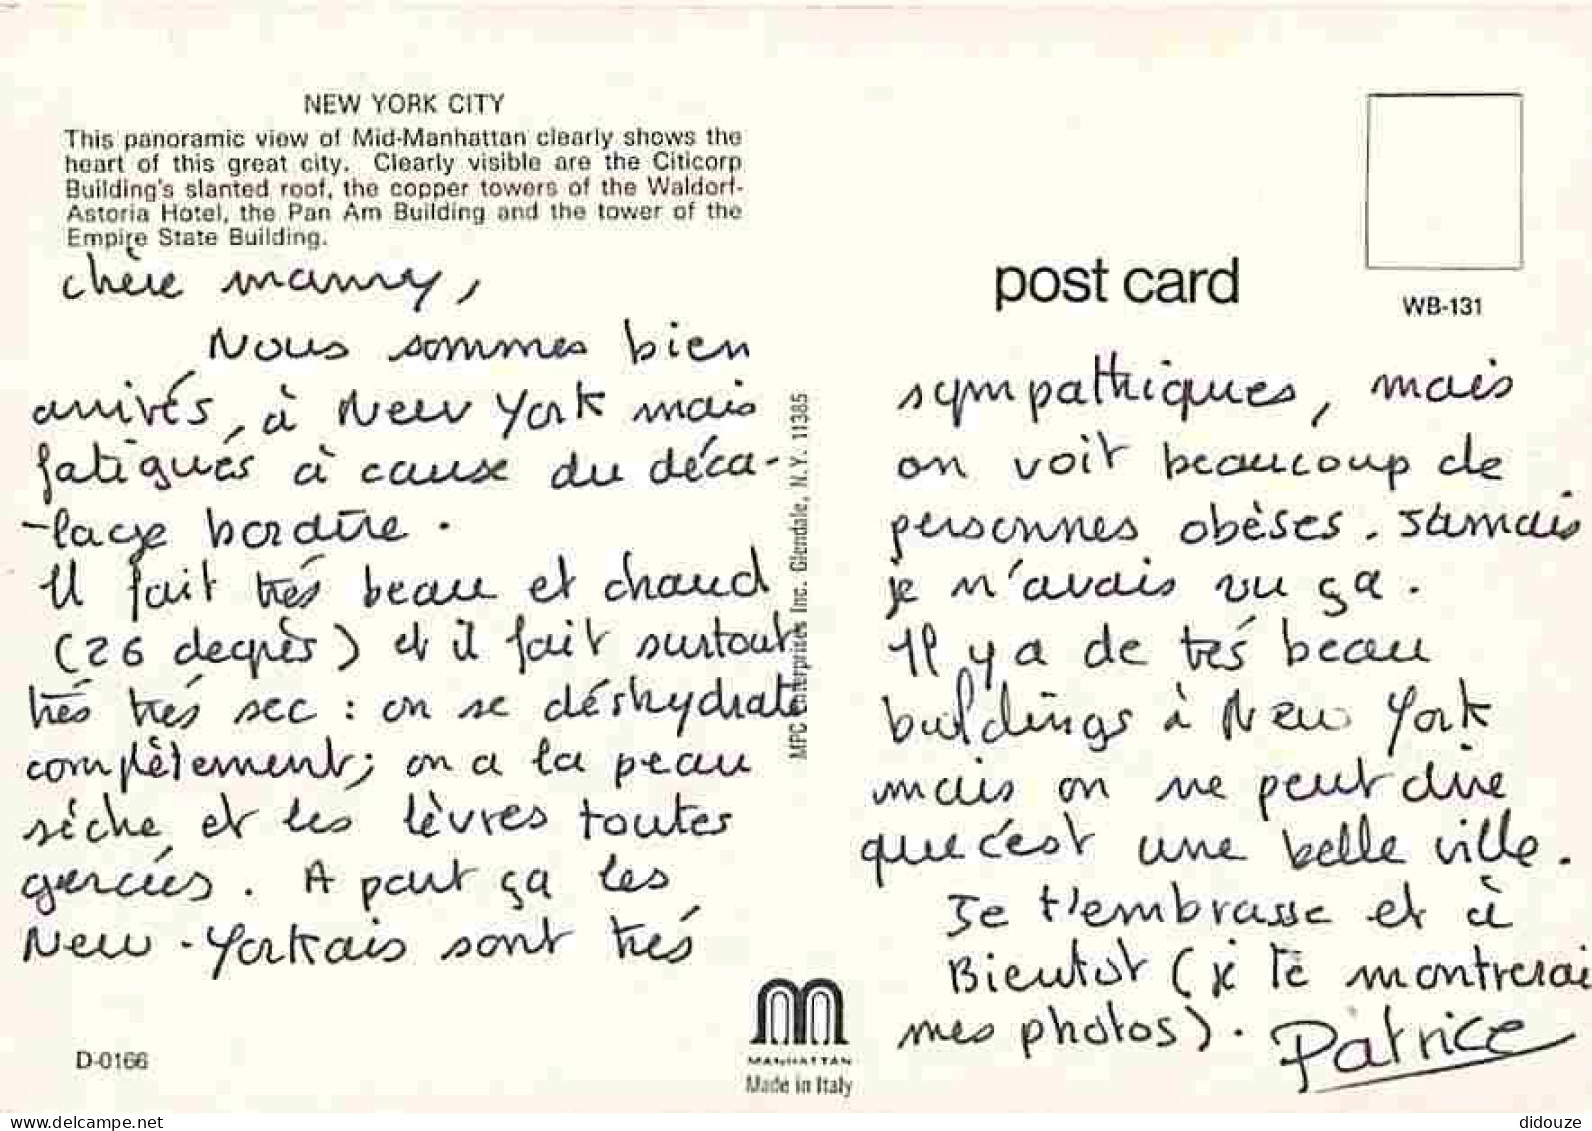 NEW YORK CITY
This panoramic view of Mid-Manhattan clearly shows the
heart of this great city. Clearly visible are the Citicorp
Building's slanted roof, the copper towers of the Waldorf-
Astoria Hotel, the Pan Am Building and the tower of the
Empire State Building.
chère mamy,
Nous sommes bien
arrivés, à New York mais
fatigués à cause du déca-
-lage horaire.
Il fait très beau et chaud
(26 degrès) et il fait surtout
très très sec : on se déshydrate
complètement; on a la peau
sèche et les lèvres toutes
gercées. A part ça les
New-Yorkais sont très
D-0166
MPC Enterprises Inc. Glendale, N.Y. 11385
MANHATTAN
Made in Italy
post card
WB-131
sympathiques, mais
on voit beaucoup de
personnes obèses. Jamais
je n'avais vu ça.
Il y a de très beau
buldings à New York
mais on ne peut dire
que c'est une belle ville.
Je t'embrasse et à
Bientôt (je te montrerai
mes photos). Patrice
www.delcampe.net
didouze